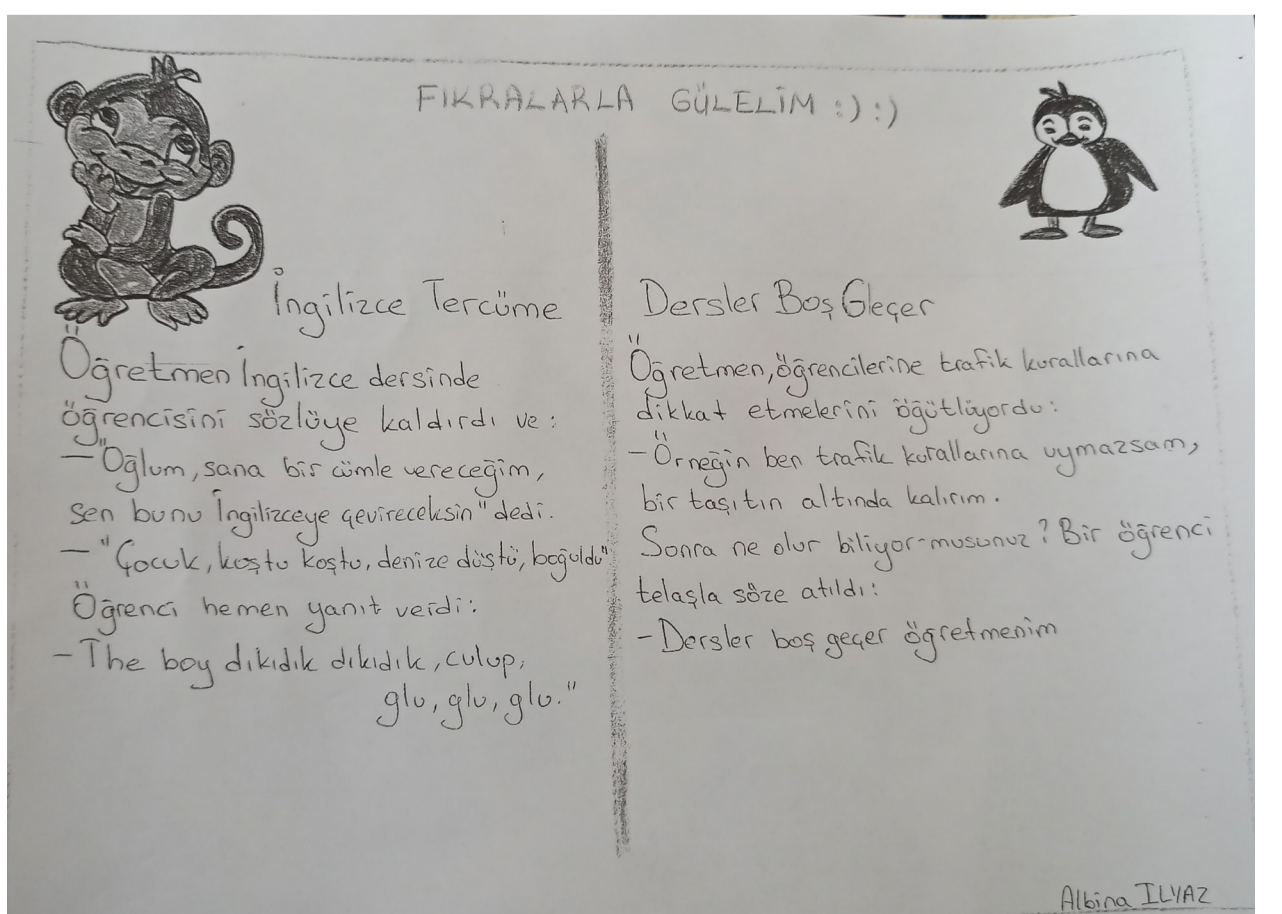 FIKRALARLA GÜLELİM :) :)
İngilizce Tercüme
Öğretmen İngilizce dersinde
öğrencisini sözlüye kaldırdı ve :
— "Oğlum, sana bir cümle vereceğim,
sen bunu İngilizceye çevireceksin" dedi.
— "Çocuk, koştu koştu, denize düştü, boğuldu"
Öğrenci hemen yanıt verdi :
- The boy dıkıdık dıkıdık, culup,
glu, glu, glu."
Dersler Boş Geçer
Öğretmen, öğrencilerine trafik kurallarına
dikkat etmelerini öğütlüyordu :
- Örneğin ben trafik kurallarına uymazsam,
bir taşıtın altında kalırım.
Sonra ne olur biliyor-musunuz ? Bir öğrenci
telaşla söze atıldı :
- Dersler boş geçer öğretmenim
Albina ILYAZ